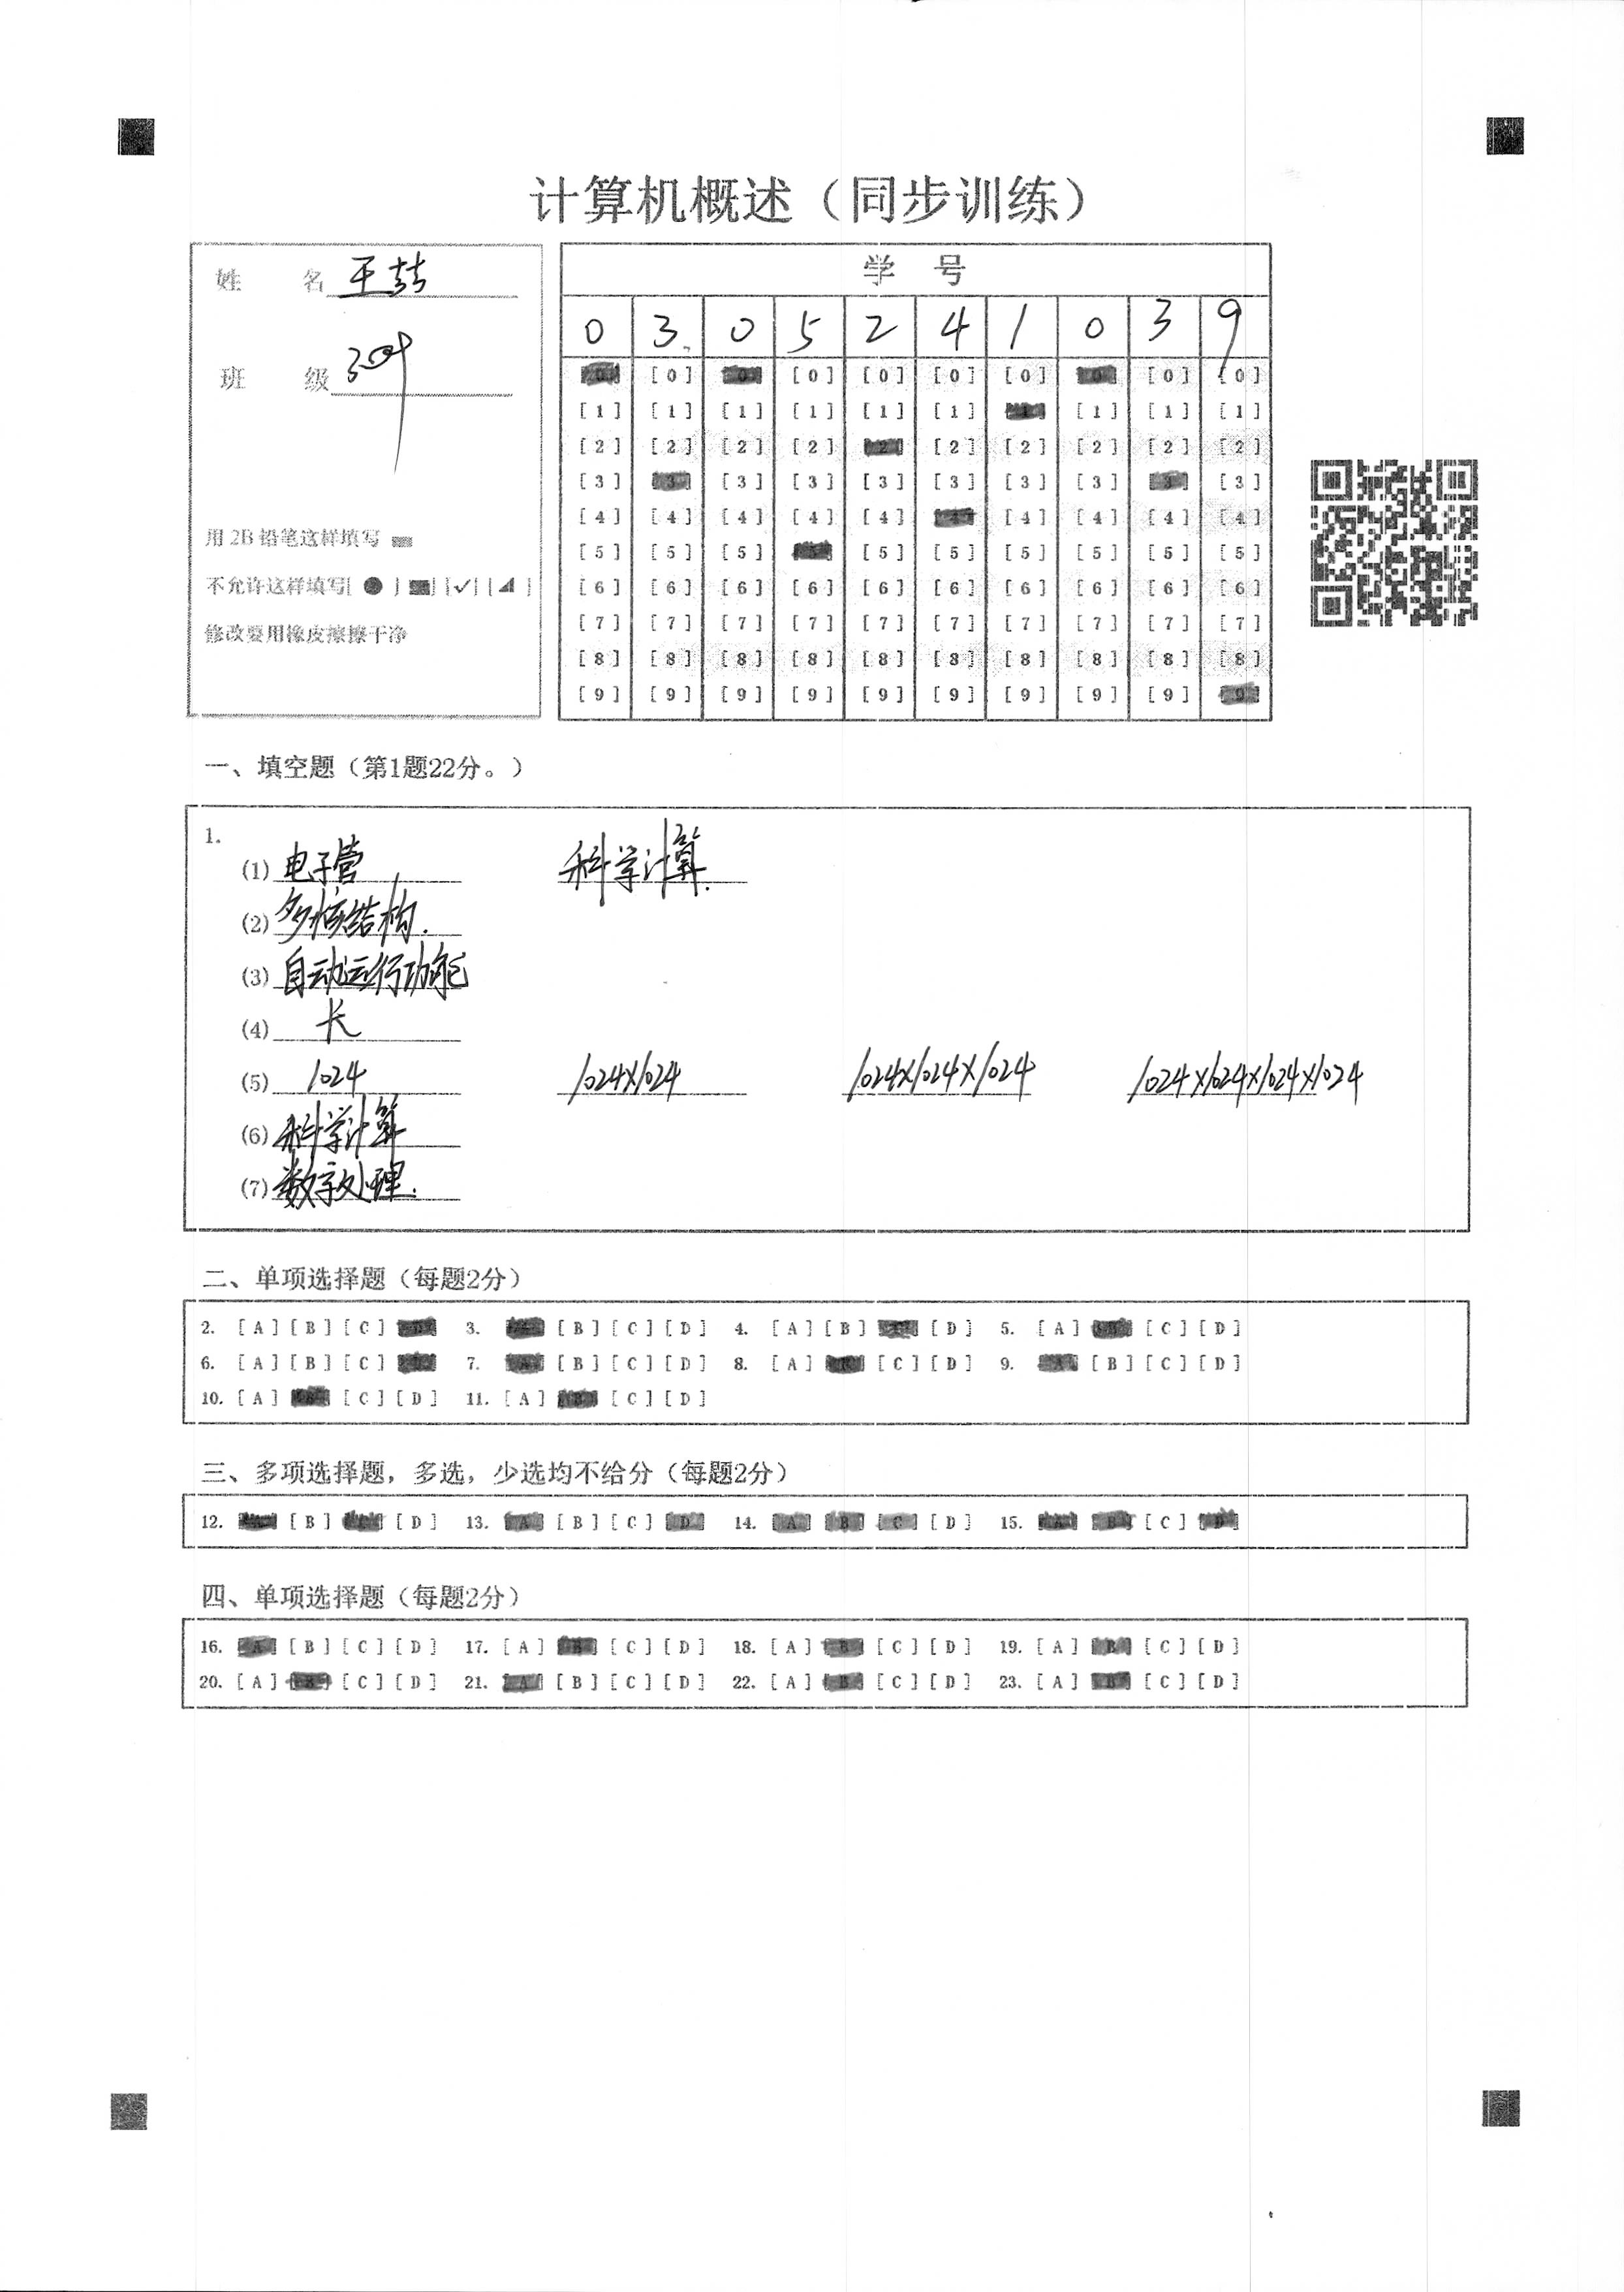 计算机概述（同步训练）
姓 名 王喆
班 级
用 2B 铅笔这样填写
不允许这样填写[ ● ] [ ] [✓] [ ]
修改要用橡皮擦擦干净
学 号
0 3 0 5 2 4 1 0 3 9
[0] [0] [0] [0] [0] [0] [0] [0] [0] [0]
[1] [1] [1] [1] [1] [1] [1] [1] [1] [1]
[2] [2] [2] [2] [2] [2] [2] [2] [2] [2]
[3] [3] [3] [3] [3] [3] [3] [3] [3] [3]
[4] [4] [4] [4] [4] [4] [4] [4] [4] [4]
[5] [5] [5] [5] [5] [5] [5] [5] [5] [5]
[6] [6] [6] [6] [6] [6] [6] [6] [6] [6]
[7] [7] [7] [7] [7] [7] [7] [7] [7] [7]
[8] [8] [8] [8] [8] [8] [8] [8] [8] [8]
[9] [9] [9] [9] [9] [9] [9] [9] [9] [9]
一、填空题（第1题22分。）
1.
(1) 电子管 科学计算.
(2) 多核结构.
(3) 自动运行功能
(4) 长
(5) 1024 1024×1024 1024×1024×1024 1024×1024×1024×1024
(6) 科学计算
(7) 数字处理.
二、单项选择题（每题2分）
2. [A] [B] [C] [D] 3. [A] [B] [C] [D] 4. [A] [B] [C] [D] 5. [A] [B] [C] [D]
6. [A] [B] [C] [D] 7. [A] [B] [C] [D] 8. [A] [B] [C] [D] 9. [A] [B] [C] [D]
10. [A] [B] [C] [D] 11. [A] [B] [C] [D]
三、多项选择题，多选，少选均不给分（每题2分）
12. [A] [B] [C] [D] 13. [A] [B] [C] [D] 14. [A] [B] [C] [D] 15. [A] [B] [C] [D]
四、单项选择题（每题2分）
16. [A] [B] [C] [D] 17. [A] [B] [C] [D] 18. [A] [B] [C] [D] 19. [A] [B] [C] [D]
20. [A] [B] [C] [D] 21. [A] [B] [C] [D] 22. [A] [B] [C] [D] 23. [A] [B] [C] [D]